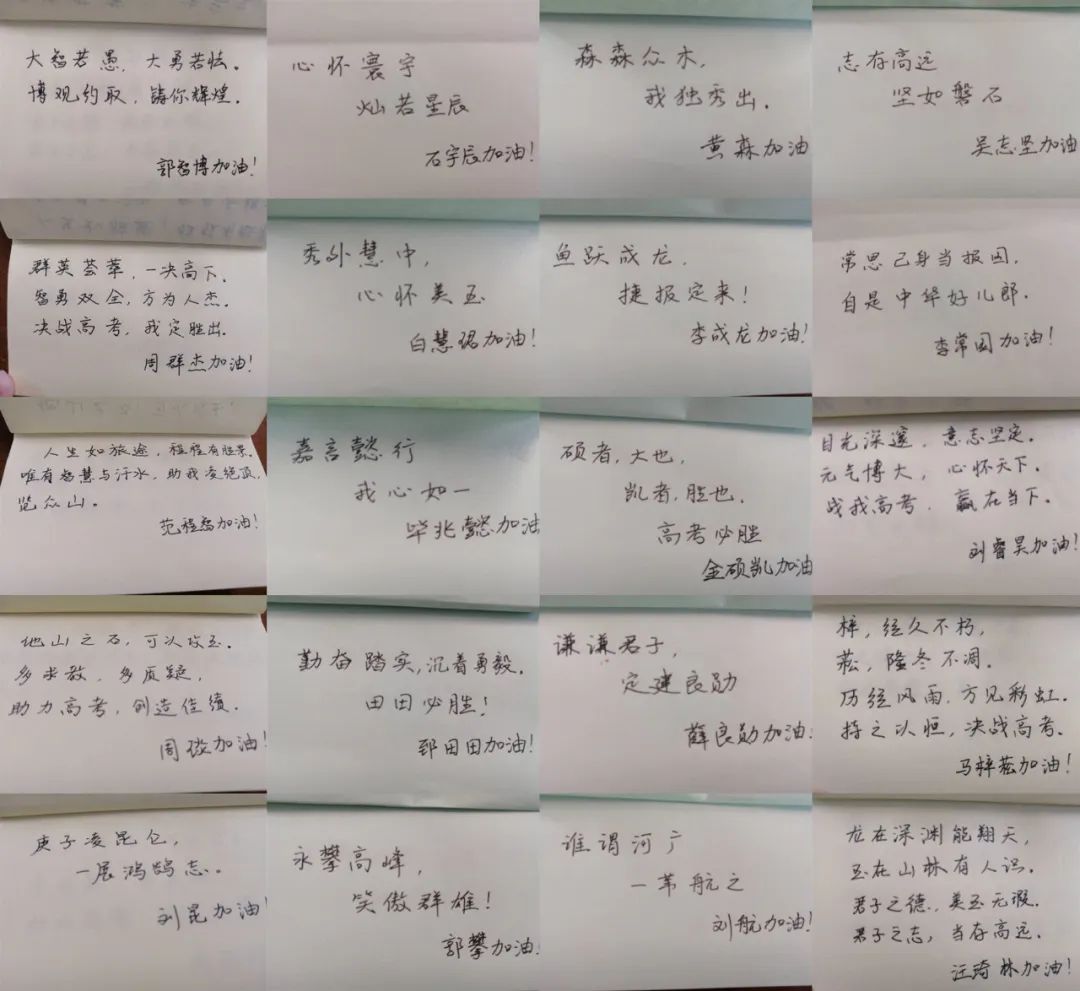 大智若愚，大勇若怯。
博观约取，铸你辉煌。
郭智博加油！
心怀寰宇
灿若星辰
石宇辰加油！
森森众木，
我独秀出。
黄森加油
志存高远
坚如磐石
吴志坚加油
群英荟萃，一决高下。
智勇双全，方为人杰。
决战高考，我定胜出。
周群杰加油！
秀外慧中，
心怀美玉
白慧珺加油！
鱼跃成龙，
捷报定来！
李成龙加油！
常思己身当报国，
自是中华好儿郎。
李常国加油！
人生如旅途，程程有胜景。
唯有智慧与汗水，助我凌绝顶，
览众山。
范程智加油！
嘉言懿行
我心如一
毕兆懿加油
硕者，大也，
凯者，胜也。
高考必胜
金硕凯加油
目光深邃，意志坚定。
元气博大，心怀天下。
战我高考，赢在当下。
刘睿昊加油！
他山之石，可以攻玉。
多求教，多质疑，
助力高考，创造佳绩。
周璇加油！
勤奋踏实，沉着勇毅。
田田必胜！
郅田田加油！
谦谦君子，
定建良勋
薛良勋加油！
梓，经久不朽，
菘，隆冬不凋。
历经风雨，方见彩虹。
持之以恒，决战高考。
马梓菘加油！
庚子凌昆仑，
一展鸿鹄志。
刘昆加油！
永攀高峰，
笑傲群雄！
郭攀加油！
谁谓河广
一苇航之
刘航加油！
龙在深渊能翔天，
玉在山林有人识。
君子之德，美玉无瑕。
君子之志，当存高远。
汪琦林加油！